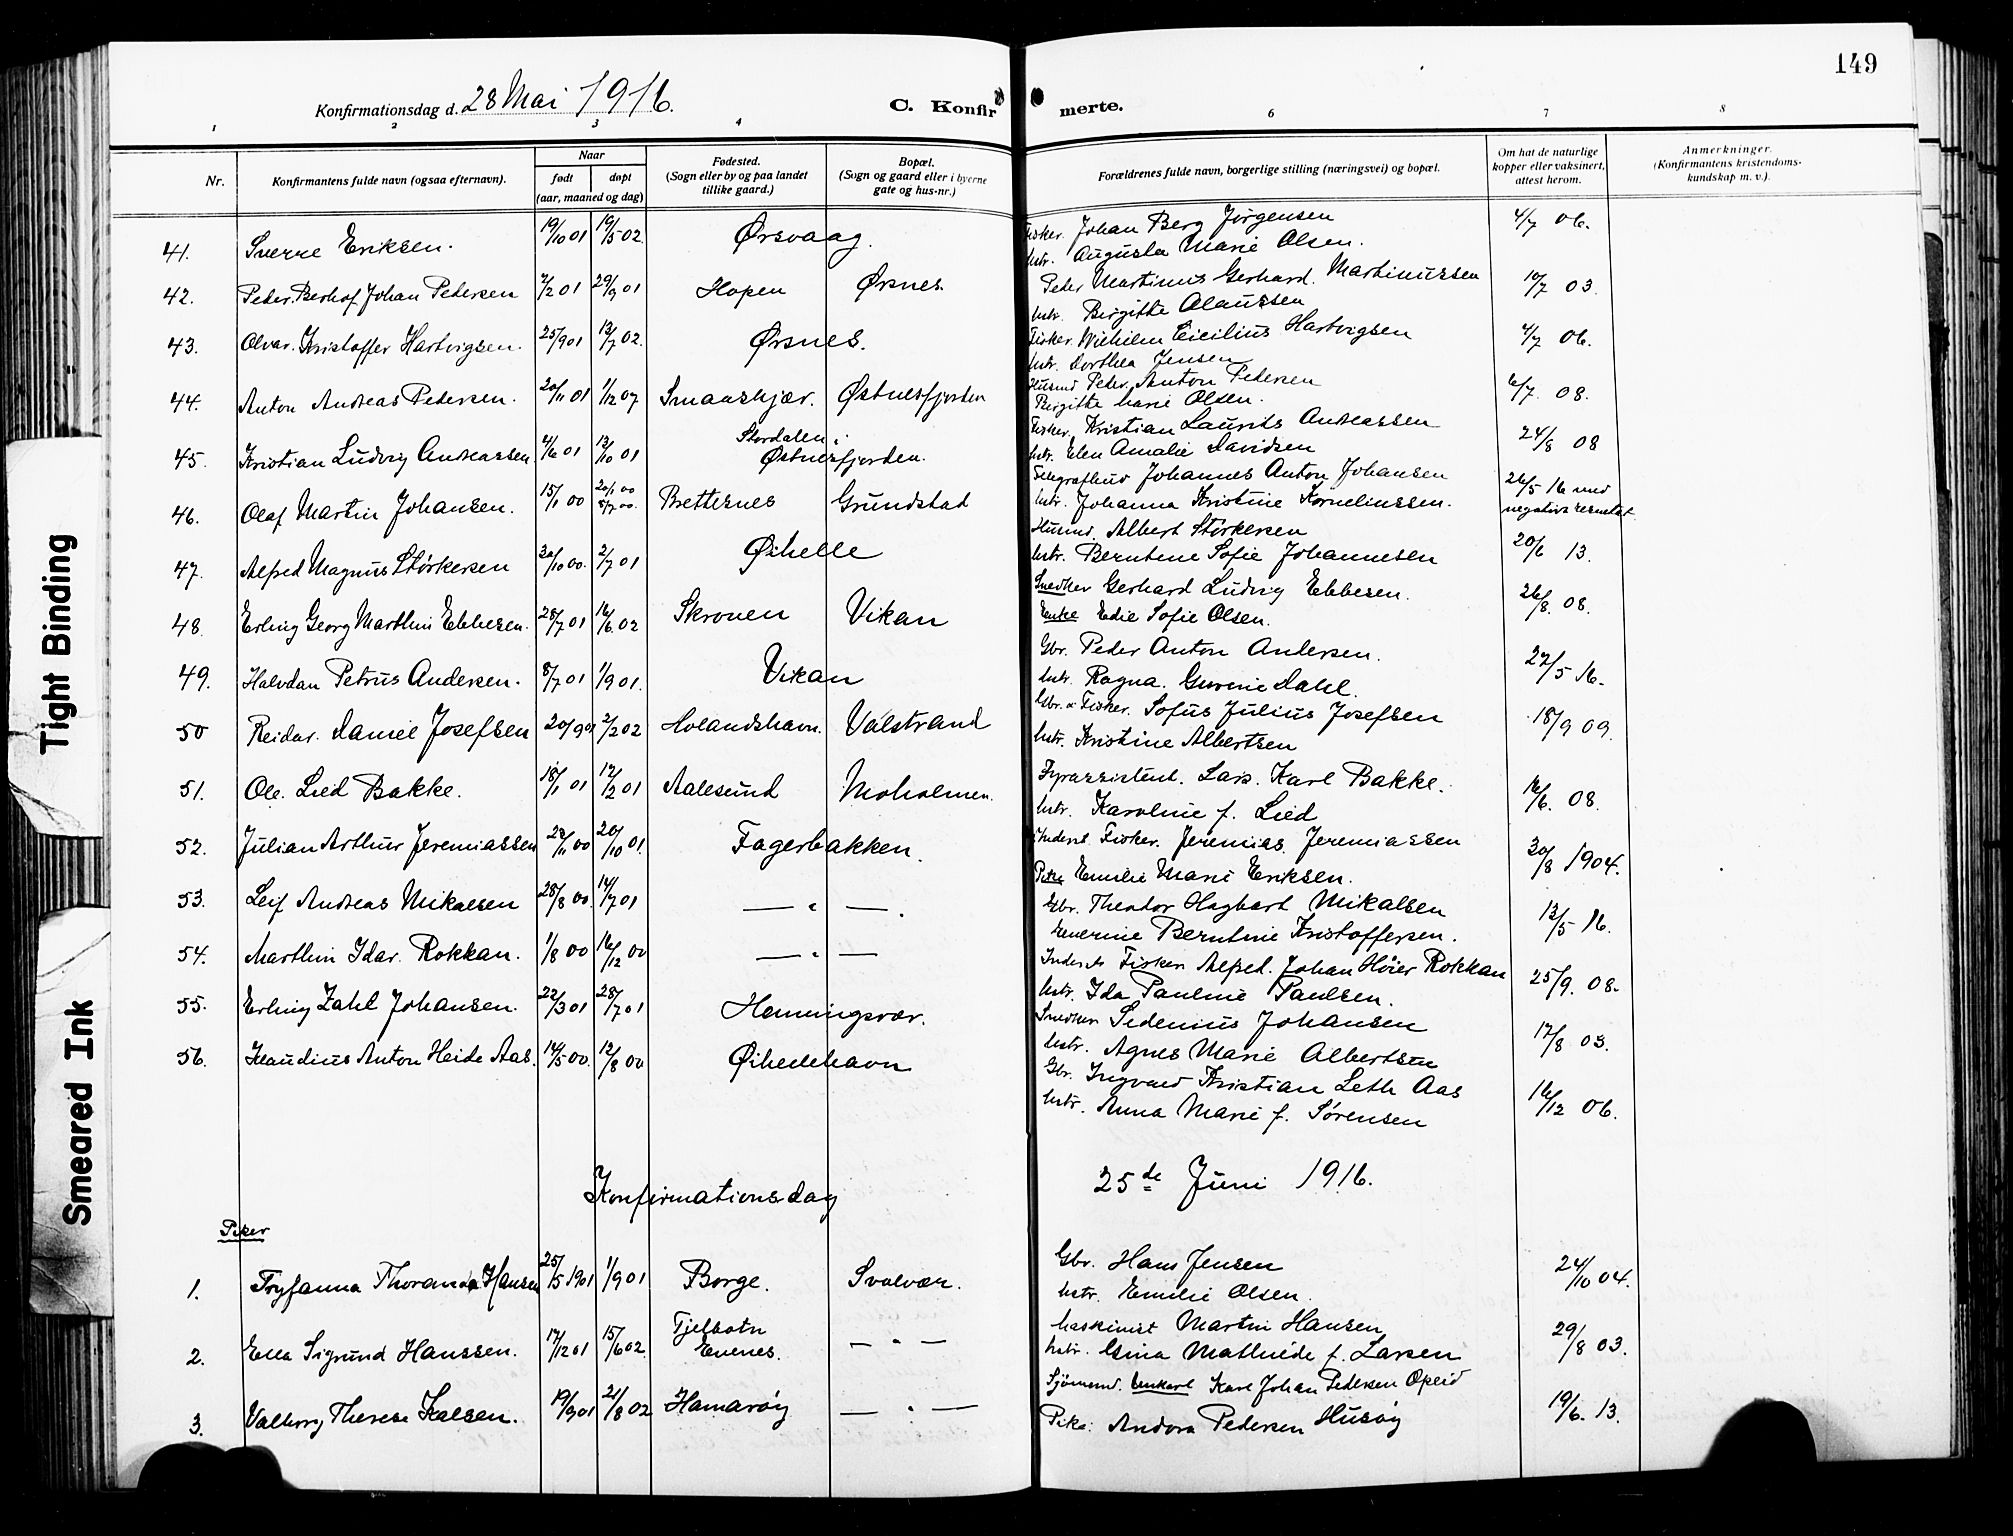 149
Konfirmationsdag d. 28 Mai 1916. C. Konfir merte.
1 2 3 4 6 7 8
Nr.
Konfirmantens fulde navn (ogsaa efternavn).
Naar
født døpt
(aar, maaned og dag)
Fødested.
(Sogn eller by og paa landet
tillike gaard.)
Bopæl.
(Sogn og gaard eller i byerne
gate og hus-nr.)
Forældrenes fulde navn, borgerlige stilling (næringsvei) og bopæl.
Om hat de naturlige
kopper eller vaksinert,
attest herom.
Anmerkninger.
(Konfirmantens kristendoms-
kundskap m. v.).
41. Sverre Eriksen. 19/10 01 19/5 02. Ørsvaag.
Fisker. Johan Berg Jørgensen 4/7 06.
hstr. Augusta Marie Olsen.
42. Peder Berhof Johan Pedersen 7/2 01 29/9 01 Hopen Ørsnes.
Peder Martinus Gerhard Martinussen 10/7 03.
hstr. Birgitte Olaussen
43. Olvar Kristoffer Hartvigsen. 25/9 01 13/7 02. Ørsnes.
Fisker. Wilhelm Cicilius Hartvigsen 4/7 06.
hstr. Dorthea Jensen
44. Anton Andreas Pedersen. 20/11 01 1/12 07 Smaaskjær. Østnesfjorden
Husmd Peder Anton Pedersen 6/7 08.
Birgitte Marie Olsen.
45. Kristian Ludvig Andreassen. 4/6 01 13/10 01 Stordalen i
Østnesfjorden.
Fisker. Kristian Laurits Andreassen 24/8 08
hstr. Elen Amalie Davidsen
46. Olaf Martin Johansen. 15/1 00 20/1 00
5/7 00. Brettesnes Grundstad
Johannes Anton Johansen 26/5 16 med
hstr. Johanna Kristine Korneliussen. negativt resultat.
47. Alfred Magnus Størkersen 30/10 00. 2/7 01 Øihelle
Husmd. Albert Størkersen 20/6 13.
hstr. Berntine Sofie Johannesen
48. Erling Georg Marthin Ebbesen. 28/7 01 16/6. 02 Skroven Vikan
Snedker Gerhard Ludvig Ebbesen. 26/8. 08.
Enke Edie Sofie Olsen.
49. Halvdan Petrus Andersen. 8/7 01 1/9 01. Vikan
Gbr. Peder Anton Andersen. 22/5 16.
hstr. Ragna Dahl.
50 Reidar Daniel Josefsen 20/9 01 2/2 02 Holandshavn. Valstrand
Gbr. & Fisker. Sofus Julius Josefsen 18/9 09.
hstr. Kristine Albertsen
51. Ole Lied Bakke. 18/1 01 12/2 01 Aalesund Moholmen.
Fyrassistent. Lars Karl Bakke. 16/6. 08.
hstr. Karoline f. Lied
52. Julian Arthur Jeremiassen 28/11 00 20/10 01. Fagerbakken.
Inderst Fisker. Jeremias Jeremiassen 30/8 1904.
Pike Emilie Marie Eriksen.
53. Leif Andreas Mikalsen 28/8 00. 14/7 01 — " —.
Gbr. Theodor Hagbart Mikalsen 13/5 16.
Severine Berntine Kristoffersen.
54. Marthin Idar Rokkan. 1/8 00 16/12 00 — " —
Inderst Fisker Alfred Johan Høier Rokkan 25/9. 08.
hstr. Ida Pauline Paulsen.
55. Erling Zahl Johansen. 22/3 01 28/7 01 Henningsvær.
Snedker Sedenius Johansen 17/8 03.
hstr. Agnes Marie Albertsen
56. Klaudius Anton Heide Aas. 14/5 00. 12/8 00 Øihellehavn
Gbr. Ingvard Kristian Leth Aas 16/12 06.
hstr. Anna Marie f. Sørensen
Konfirmationsdag 25de Juni 1916.
Piker
1. Tryfanna Thoranda Hansen 25/5 1901 1/9 01 Borge. Svolvær.
Gbr. Hans Jensen 24/10 04.
hstr. Emilie Olsen.
2. Ella Sigrund Hanssen. 17/12 01 15/6 02 Tjelbotn
Evenes. — " —
Maskinist Martin Hansen 29/8 03.
hstr. Gina Mathilde f. Larsen
3. Valborg Therese Karlsen. 19/9 01 21/8 02 Hamarøy — " —
Sjømand. Unkarl Karl Johan Pedersen Opeid 19/6. 13.
Pike. Andora Pedersen Husøy
Tight Binding
Smeared Ink